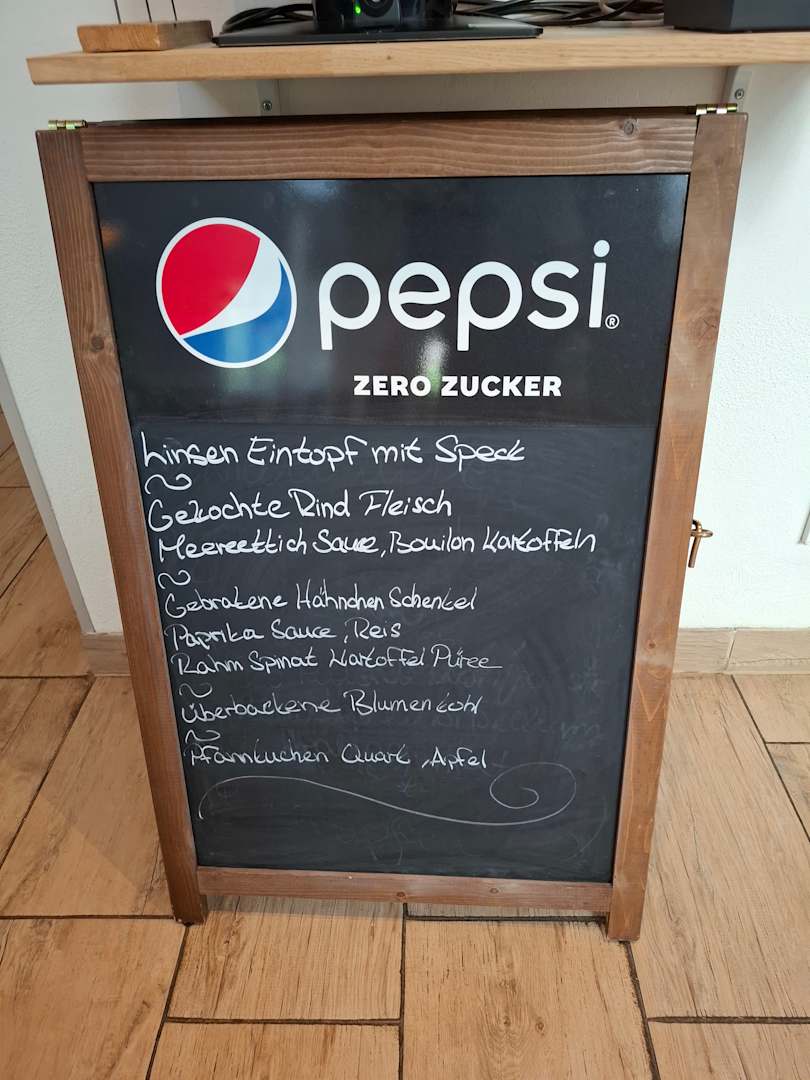 pepsi®
ZERO ZUCKER
Linsen Eintopf mit Speck
~
Gekochte Rind Fleisch
Meerettich Sauce, Bouilon Kartoffeln
~
Gebratene Hähnchen Schenkel
Paprika Sauce, Reis
Rahm Spinat Kartoffel Püree
~
Überbackene Blumenkohl
~
Pfannkuchen Quark, Apfel